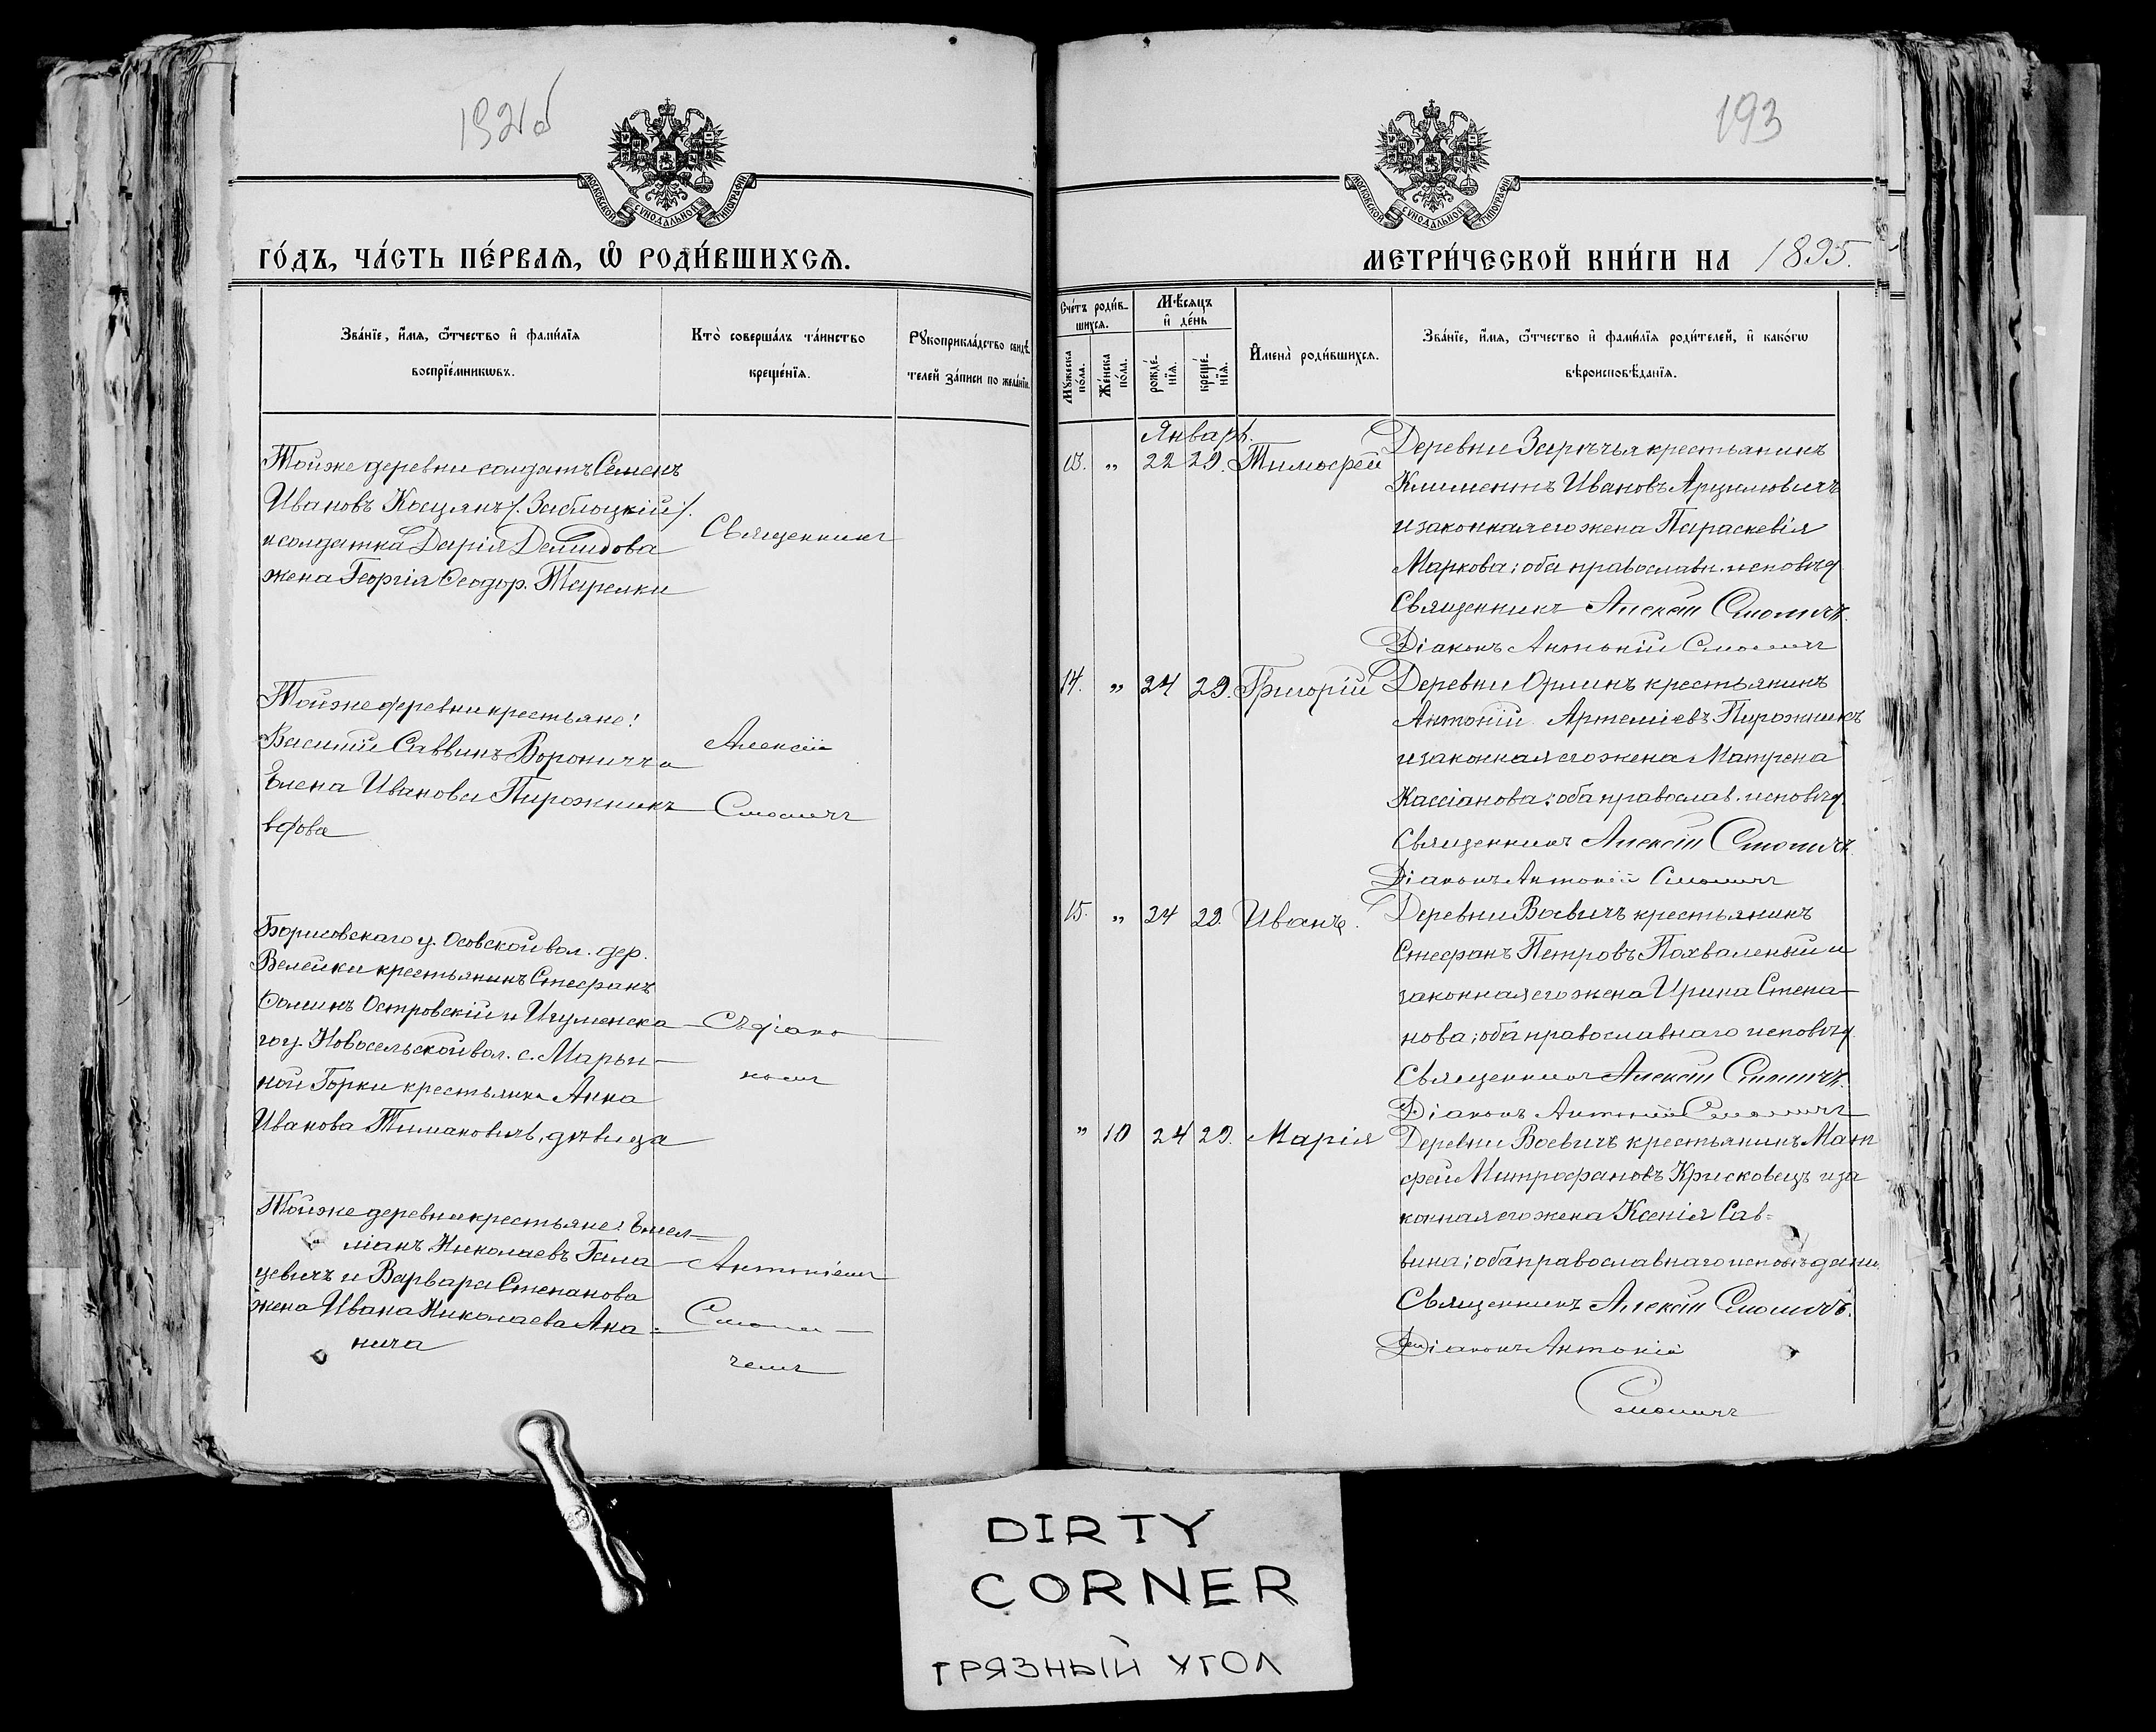 192об
МОСКОВСКОЙ СѴНОДАЛЬНОЙ ТИПОГРАФІИ
ГО́ДЪ, ЧА́СТЬ ПЕ́РВАѦ, Ѽ РОДИ́ВШИХСѦ.
Зва́нїе, и҆́мѧ, ѻ҆́тчество и҆ фами́лїѧ
воспрїе́мникѡвъ.
Кто̀ соверша́лъ та́инство
креще́нїѧ.
Рꙋкоприкла́дство свидѣ́
телей за́писи по жела́нїю
Тойже деревни солдатъ Семенъ
Ивановъ Косцянъ /. Заблоцкій /.
и солдатка Дарія Демидова
жена Георгія Ѳеодор. Тарелки
Священникъ
Тойже деревни крестьяне:
Василій Саввинъ Вороничъ и
Елена Иванова Пирожникъ
вдова
Алексій
Смоличъ
Борисовскаго у. Осовской вол. дер.
Велейки крестьянинъ Стефанъ
Ѳоминъ Островскій и Игуменска
го у. Новосельской вол. с. Марьи-
ной Горки крестьянка Анна
Иванова Тимановичъ, дѣвица
Съ діако
номъ
Тойже деревни крестьяне: Емел-
ліанъ Николаевъ Гала
цевичъ и Варвара Степанова
жена Ивана Николаева Ана-
нича
Антоніемъ
Смоли-
чемъ
193
МОСКОВСКОЙ СѴНОДАЛЬНОЙ ТИПОГРАФІИ
МЕТРИ́ЧЕСКОЙ КНИ́ГИ НА 1895.
Сче́тъ роди́в-
шихсѧ.
Мꙋ́жеска по́ла.
Же́нска по́ла.
М́ѣсѧцъ
и҆ де́нь
рожде́-
нїѧ.
креще́-
нїѧ.
И҆мена̀ роди́вшихсѧ.
Зва́нїе, и҆́мѧ, ѻ҆́тчество и҆ фами́лїѧ роди́телей, и҆ како́гѡ
вѣроисповѣ́данїѧ.
Январь.
13. " 22 29. Тимоѳей
Деревни Зарѣчья крестьянинъ
Климентъ Ивановъ Арцимовичъ
и законная его жена Параскевія
Маркова; оба православн. исповѣд.
Священникъ Алексій Смоличъ.
Діаконъ Антоній Смоличъ
14. " 24 29. Григорій
Деревни Орлинъ крестьянинъ
Антоній Артеміевъ Пирожникъ
и законная его жена Матрена
Кассіанова; оба православ. исповѣд.
Священникъ Алексій Смоличъ.
Діаконъ Антоній Смоличъ
15. " 24 29. Иванъ.
Деревни Воевичъ крестьянинъ
Стефанъ Петровъ Похваленый и
законная его жена Ирина Степа-
нова; оба православнаго исповѣд.
Священникъ Алексій Смоличъ.
Діаконъ Антоній Смоличъ
" 10 24 29. Марія
Деревни Воевичъ крестьянинъ Мат
фей Митрофановъ Крисковецъ и за
конная его жена Ксенія Сав-
вина; оба православнаго исповѣдани.
Священникъ Алексій Смоличъ.
Діаконъ Антоній
Смоличъ
DIRTY
CORNER
ГРЯЗНЫЙ УГОЛ